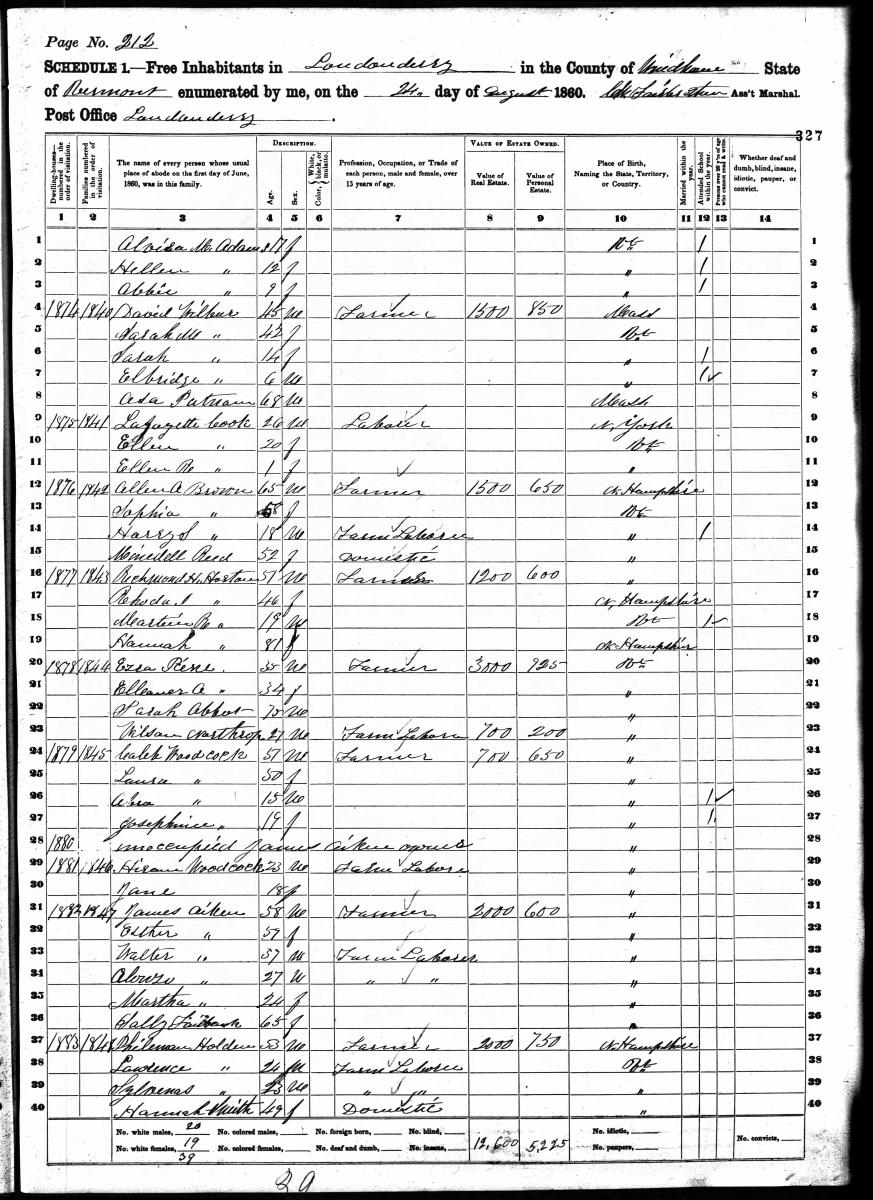 Page No. 212
SCHEDULE 1.—Free Inhabitants in Londonderry in the County of Windham State
of Vermont enumerated by me, on the 24 day of August 1860. Ass't Marshal.
Post Office Londonderry
327
Dwelling-houses—numbered in the order of visitation.
Families numbered in the order of visitation.
The name of every person whose usual place of abode on the first day of June, 1860, was in this family.
DESCRIPTION.
Age.
Sex.
Color, White, black, or mulatto.
Profession, Occupation, or Trade of each person, male and female, over 15 years of age.
VALUE OF ESTATE OWNED.
Value of Real Estate.
Value of Personal Estate.
Place of Birth, Naming the State, Territory, or Country.
Married within the year.
Attended School within the year.
Persons over 20 y'rs of age who cannot read & write.
Whether deaf and dumb, blind, insane, idiotic, pauper, or convict.
1 2 3 4 5 6 7 8 9 10 11 12 13 14
1 M. Adams 17 f Vt / 1
2 Hellen " 12 f " / 2
3 Abbie " 9 f " / 3
4 1874 1840 David Wilbur 45 m Farmer 1500 850 Mass 4
5 Sarah M " 42 f Vt 5
6 Sarah " 14 f " / 6
7 Elbridge " 6 m " / 7
8 Asa Putnam 68 m Mass 8
9 1875 1841 Lafayette Cook 26 m Laborer N. York 9
10 Ellen " 20 f Vt 10
11 Ellen R " 1 f " 11
12 1876 1842 Allen A Brown 65 m Farmer 1500 650 N. Hampshire 12
13 Sophia " 58 f Vt 13
14 Harry S " 18 m Farm Laborer " / 14
15 Reed 52 f Domestic " 15
16 1877 1843 Richmond H. Horton 51 m Farmer 1200 600 " 16
17 Rhoda " 46 f N. Hampshire 17
18 Martin R " 19 m Vt / 18
19 Hannah " 81 f N. Hampshire 19
20 1878 1844 Ezra 35 m Farmer 3000 925 Vt 20
21 Elleaner A " 34 f " 21
22 Sarah Abbot 75 " 22
23 Wilson Northrop 27 m Farm Labore 700 200 " 23
24 1879 1845 Caleb Woodcock 51 m Farmer 700 650 " 24
25 Laura " 50 f " 25
26 " 15 m " / 26
27 Josephine " 19 f " / 27
28 1880 unoccupied James Aiken owner " 28
29 1881 1846 Hiram Woodcock 23 m Farm Labore " 29
30 Jane 18 f " 30
31 1882 1847 James Aiken 58 m Farmer 2000 600 " 31
32 Esther " 59 f " 32
33 Walter " 37 m Farm Laborer " 33
34 Alonzo " 27 m " " " 34
35 Martha " 24 f " 35
36 Sally Fairbank 65 f " 36
37 1883 1848 Philemon Holden 53 m Farmer 2000 750 N. Hampshire 37
38 Lawrence " 24 m Farm Laborer Vt 38
39 Sylvenas " 23 m " " " 39
40 Hannah Smith 49 f Domestic " 40
No. white males, 20 No. colored males, No. foreign born, No. blind, No. idiotic,
No. white females, 19 No. colored females, No. deaf and dumb, No. insane, 12,600 5,225 No. paupers, No. convicts,
39
39